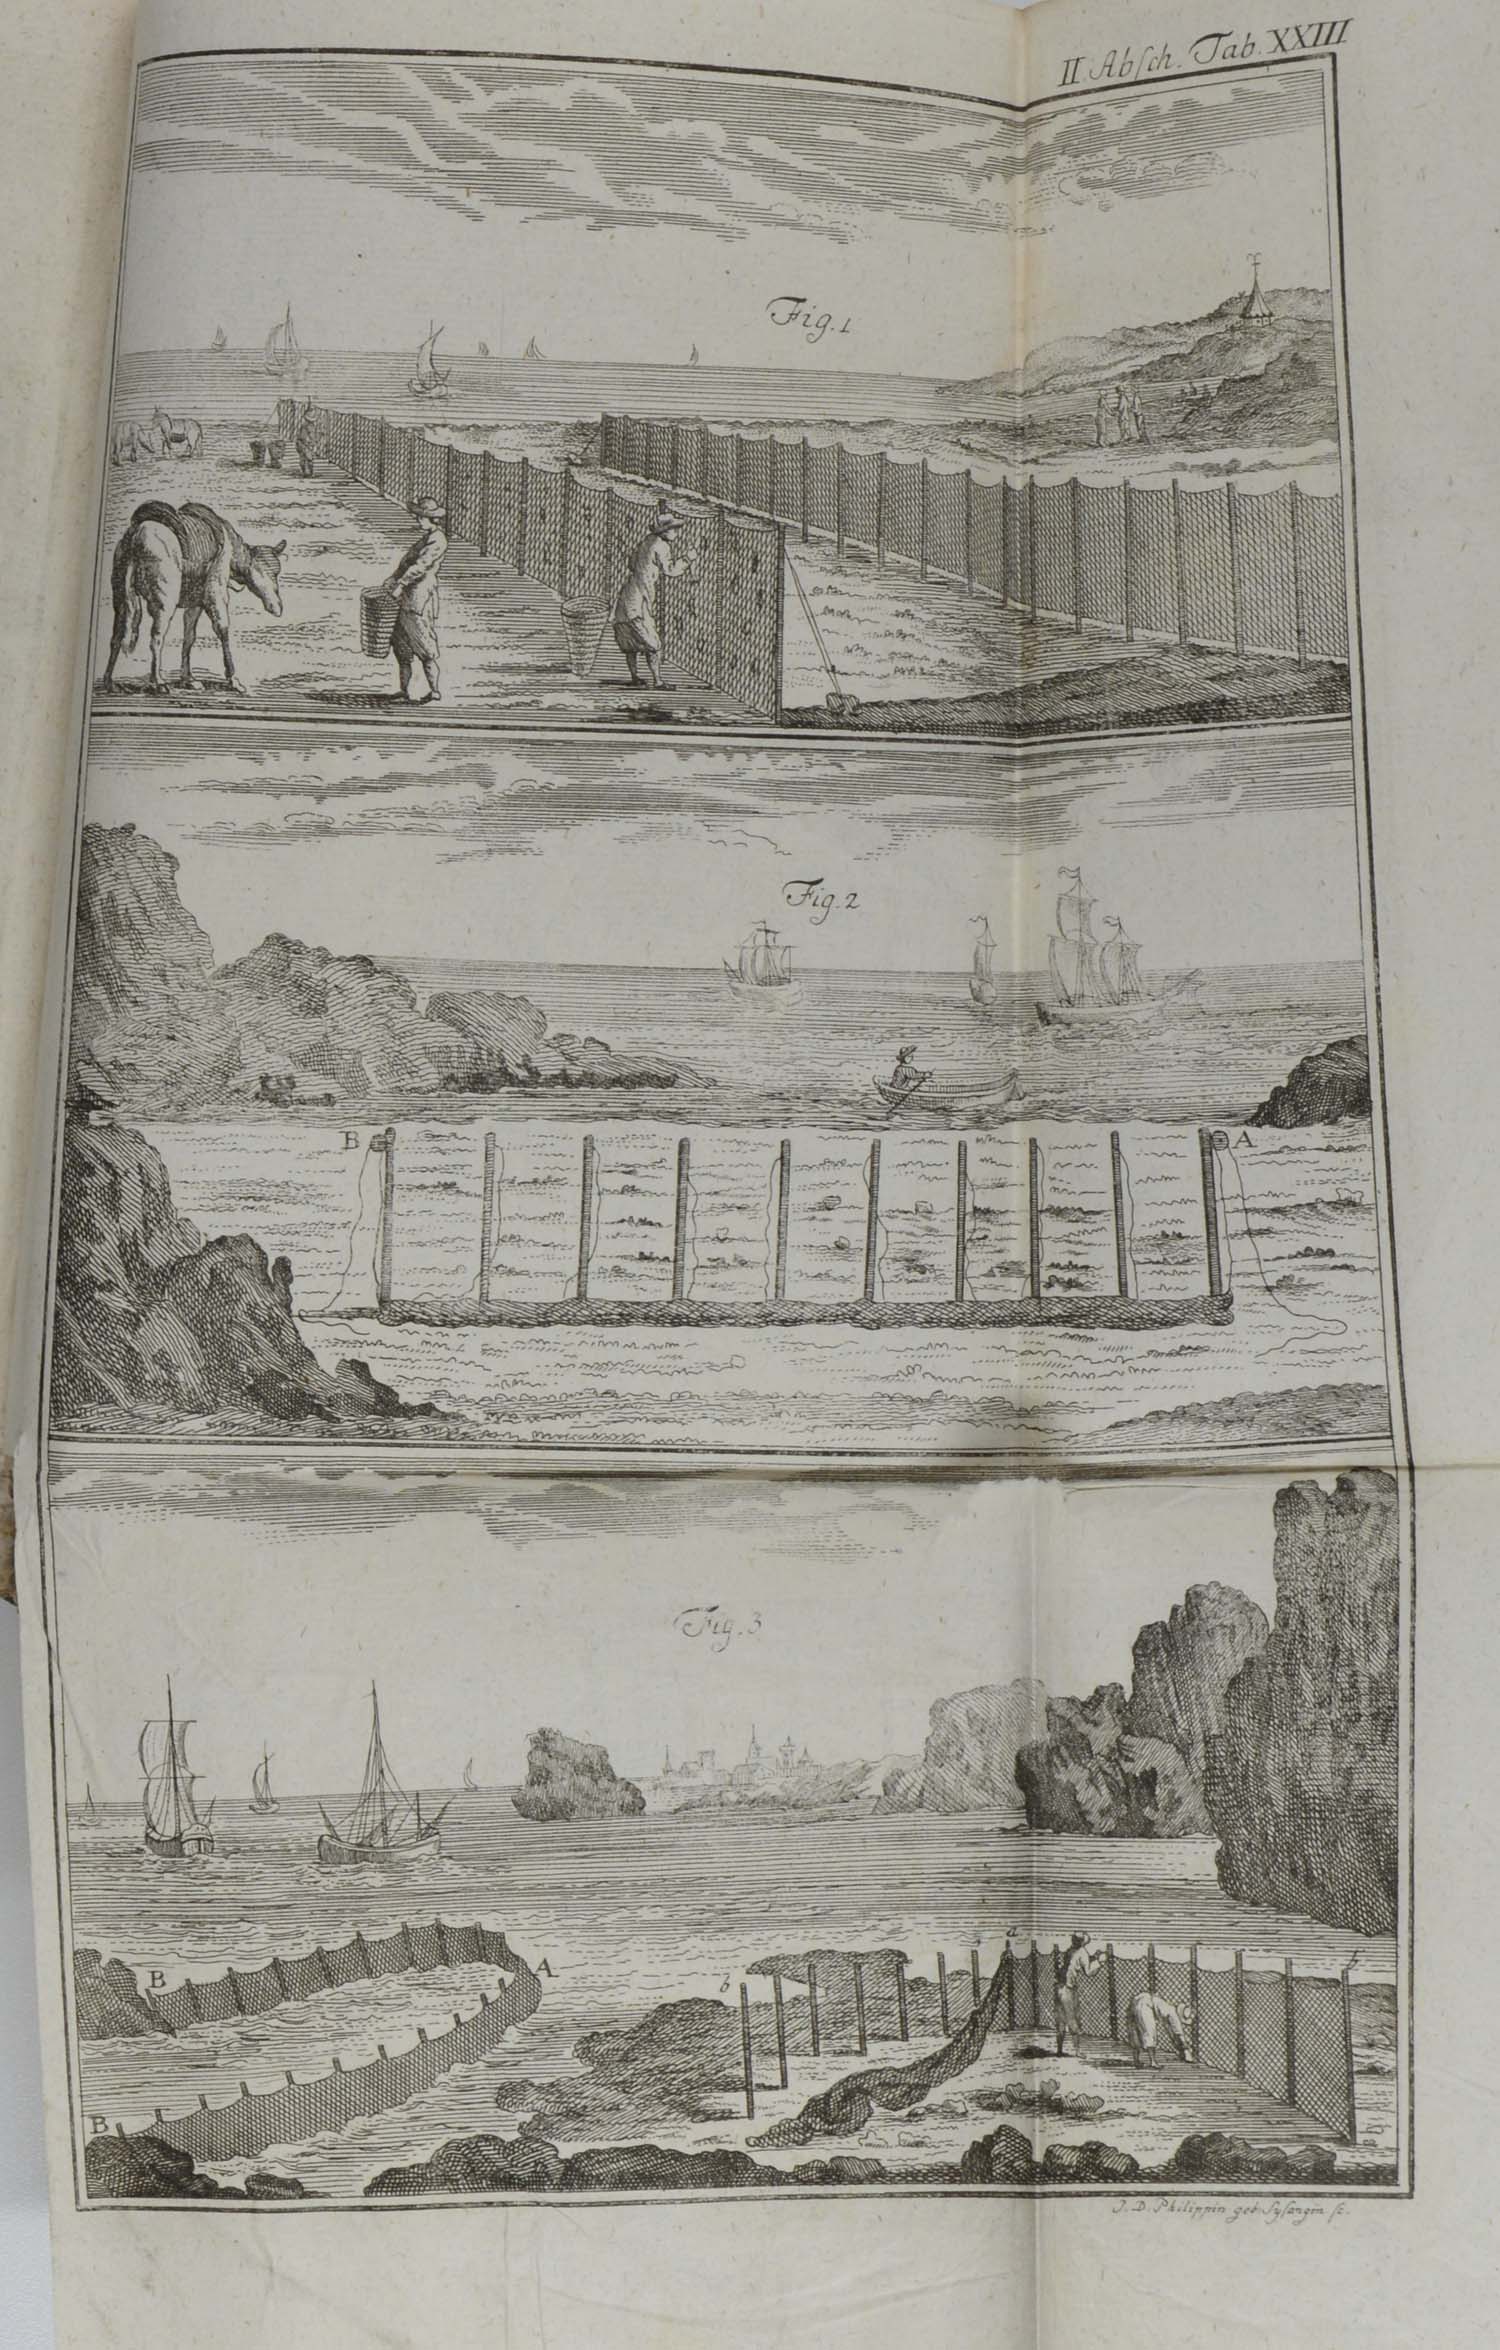 II. Abſch. Tab. XXIII
Fig. 1
Fig. 2
B A
Fig. 3
B A
b a b
B
J. D. Philippin geb. Sysangin sc.